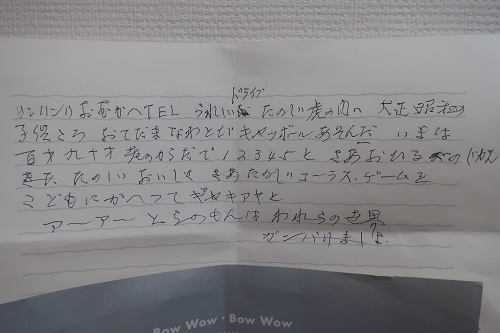 ドライブ
リンリンリおむかへTEL うれしい たのしい虎の門へ 大正昭和の
子供ころ おてだまなわとびキャッボールあそんだ いまは
百才九十才 老のからだで12345と さあおひる
たのしい おいしく さあたのしいコーラス.ゲームと
こどもにかへつてギャキアヤと
アーアー とらのもんは われらの世界
ガンバリましよ.
Bow Wow・Bow Wow